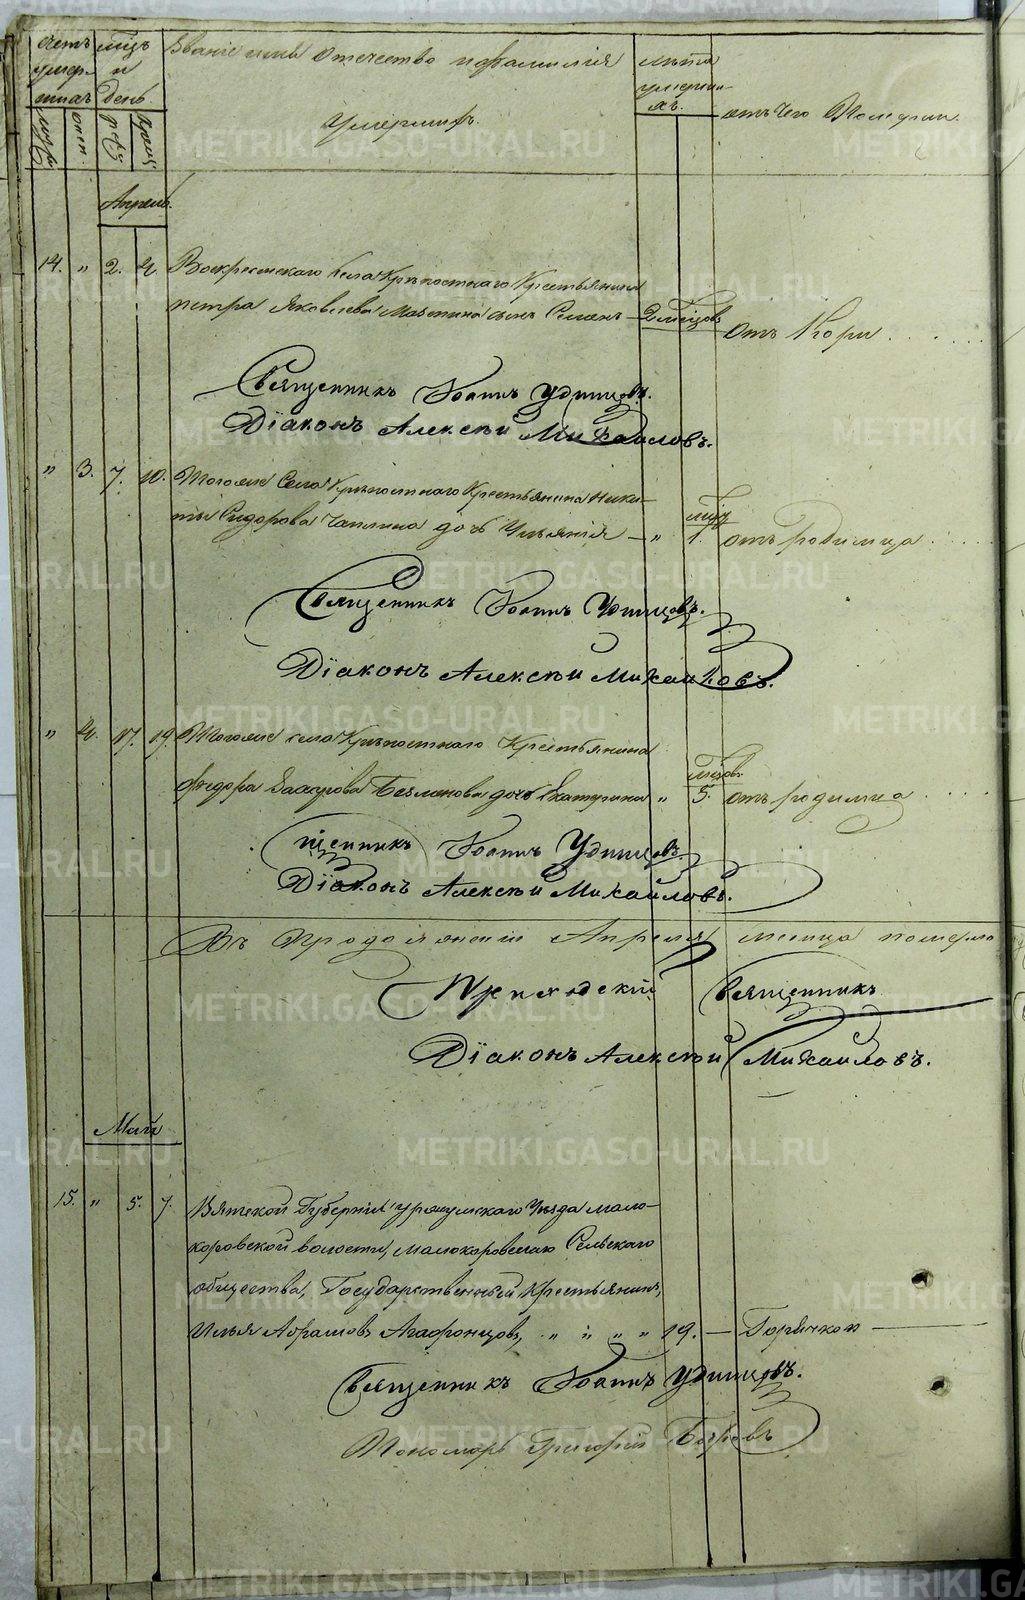 счетъ мцъ Званіе имя отечество и фамилія лѣта
умер- и умерши-
шихъ день умершихъ. хъ. отъ чего Померли.
Апрель.
14. " 2. 4. Воскресенскаго села Крѣпостнаго Крестьянина
петра Яковлева сынъ Семенъ — 2 месяцовъ отъ Кори
Священникъ Іоаннъ Удинцовъ.
Діаконъ Алексѣй Михайловъ.
" 3. 7. 10. Тогоже Села Крѣпостнаго Крестьянина Ники-
ты Сидорова Чаплина дочь — " 1. мцъ отъ родимца
Священникъ Іоаннъ Удинцовъ.
Діаконъ Алексѣй Михайловъ.
" 4. 17. 19. Тогоже села Крѣпостнаго Крестьянина
Федора дочь Екатерина " 5. мцовъ отъ родимца
щенникъ Іоаннъ Удинцовъ.
Діаконъ Алексѣй Михайловъ.
Въ продолженіи Апреля месяца померло
Приходскій Священникъ
Діаконъ Алексѣй Михайловъ.
Май
15. " 5. 7. Вятской Губерніи уржумскаго Уѣзда мало-
коровской волости, малокоровскаго Сельскаго
общества, Государственный Крестьянинъ,
Илья Абрамовъ Агафонцовъ, " " " " 19. — Горячкой —
Священникъ Іоаннъ Удинцовъ.
Пономарь Григорій
METRIKI.GASO-URAL.RU